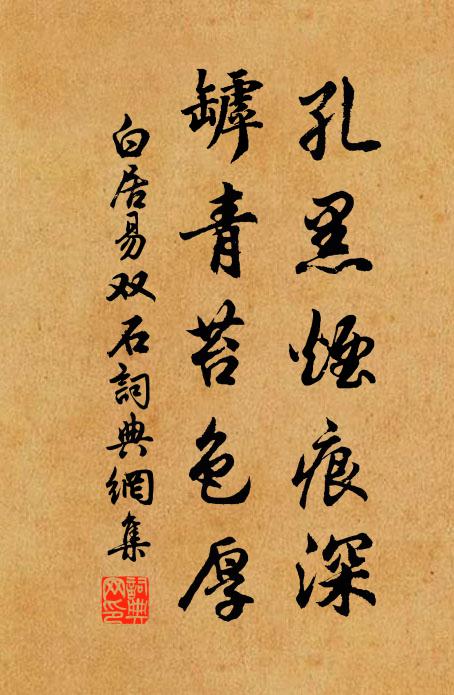 孔黑煙痕深
罅青苔色厚
白居易双石詞典網集
詞典网印